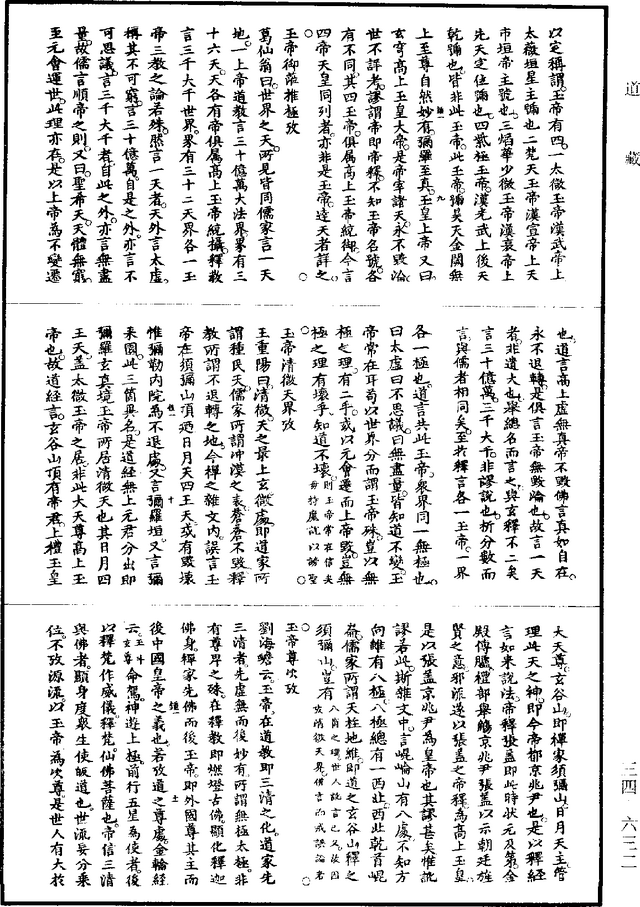 道藏
以定稱謂玉帝有四一太微玉帝漢武帝上
太薇垣星主號也二梵天玉帝漢宣帝上天
市垣帝主號也三焰華少微玉帝漢哀帝上
先天定位號也四紫極玉帝漢光武上後天
乾號也皆非此玉帝此玉帝號昊天金闕無
上至尊自然妙有彌羅至真玉皇上帝又曰
玄穹高上玉皇大帝是帝宰諸天永不毀淪
世不詳考謬謂帝即帝釋不知玉帝名號各
有不同其四玉帝俱屬高上玉帝統御今言
四帝天皇同列者亦非是玉帝達天者詳之
玉帝御蒞推極攷
葛仙翁曰世界之天所見皆同儒家言一天
地一上帝道教言三十億萬大法界界有三
十六天天各有帝俱屬高上玉帝統攝釋教
言三千大千世界界有三十二天界各一玉
帝三教之論若殊然言一天者天外言太虛
稱其不可窮言三十億萬自是之外亦言不
可思議言三千大千者自此之外亦言無盡
量故儒言順帝之則又曰聖希天天體無窮
至元會運世此理亦在是以上帝為不變遷
也道言高上虛無真帝不毀佛言真如自在
永不退轉是俱言玉帝無毀淪也故言一天
者非遺大也舉總名而言之與玄釋不二矣
言三十億萬三千大千非謬說也析分數而
言與儒者相同矣至於釋言各一玉帝一界
各一極也道言共此玉帝衆界同一無極也
曰太虛曰不思議曰無盡量皆知道不變玉
帝常在耳苟以世界分而謂玉帝殊豈以無
極之理有二乎或以元會遷而上帝毀豈無
極之理有壞乎知道不壞則玉帝常在信矣毋持魔說以謗聖
玉帝清微天界攷
王重陽曰清微天之最上玄微處即道家所
謂種民天儒家所謂沖漠之表蒼蒼不毀釋
教所謂不退轉之地今禪之雜文內誤言玉
帝在須彌山頂迺日月天四王天或有毀壞
惟彌勒內院為不退處又言彌羅垣又言彌
來園此三箇異名是道經無上元君分出即
彌羅玄真境玉帝所居清微天也其日月四
王天蓋太微玉帝之居非此大天尊高上玉
帝也故道經言玄谷山頂有帝君上禮玉皇
大天尊玄谷山即禪家須彌山日月天主管
理此天之神即今帝都京兆尹也是以釋經
言如來說法帝釋張蓋即此時狀元及第金
殿傳臚禮部舉觴京兆尹張蓋以示朝廷旌
賢之意邪流遂以張蓋之帝釋為高上玉皇
是以張蓋京兆尹為皇帝也其謬甚矣惟訛
謬若此斯雜文中言崐崘山有八處不知方
向維有八極八極總有一西北西北乾首崐
崙儒家所謂天柱地維即道之玄谷山釋之
須彌山豈有
玉帝尊次攷
劉海蟾云玉帝在道教即三清之化道家先
三清者先虛無而後妙有所謂無極太極非
有尊卑之殊在釋教即燃燈古佛顯化釋迦
佛身釋家先佛而後玉帝即外國尊其主而
後中國皇帝之義也若攷道之尊處金輪經
云玉十玄尊命駕神遊上極前行五星為使者後
以釋梵作威儀釋梵仙佛菩薩也帝信三清
與佛者顯身度衆生使皈道也世流妄分乘
位不攷源流以玉帝為次尊是世人有大於
三四六三二